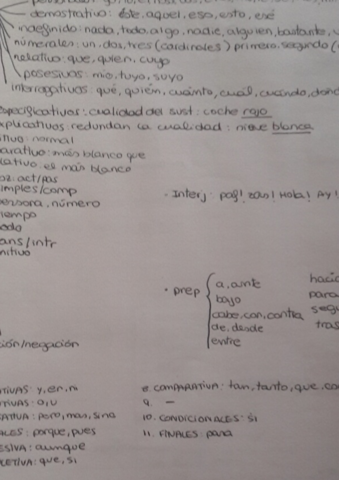 demostrativo: éste, aquel, eso, esto, esé
indefinido: nada, todo, algo, nadie, alguien, bastante,
númerales: un, dos, tres (cardinales) primero, segundo (
relativo: que, quien, cuyo
posesivos: mio, tuyo, suyo
interrogativos: qué, quién, cuánto, cuál, cuándo, dónd
specificativos: cualidad del sust: coche rojo
xplicativos: redundan la cualidad: nieve blanca
itivo: normal
arativo: más blanco que
lativo: el más blanco
oz: act/pas
imples/comp
ersona, número
iempo
odo
ans/intr
nitivo
- Interj: paf! zas! Hola! Ay!
· prep
a, ante
bajo
cabe, con, contra
de, desde
entre
hacia
para
segu
tras
ción/negación
TIVAS: y, e, ni
TIVAS: o, u
SATIVA: pero, mas, sino
ALES: porque, pues
ESIVA: aunque
LETIVA: que, si
8. COMPARATIVA: tan, tanto, que, co
9. —
10. CONDICIONALES: si
11. FINALES: para